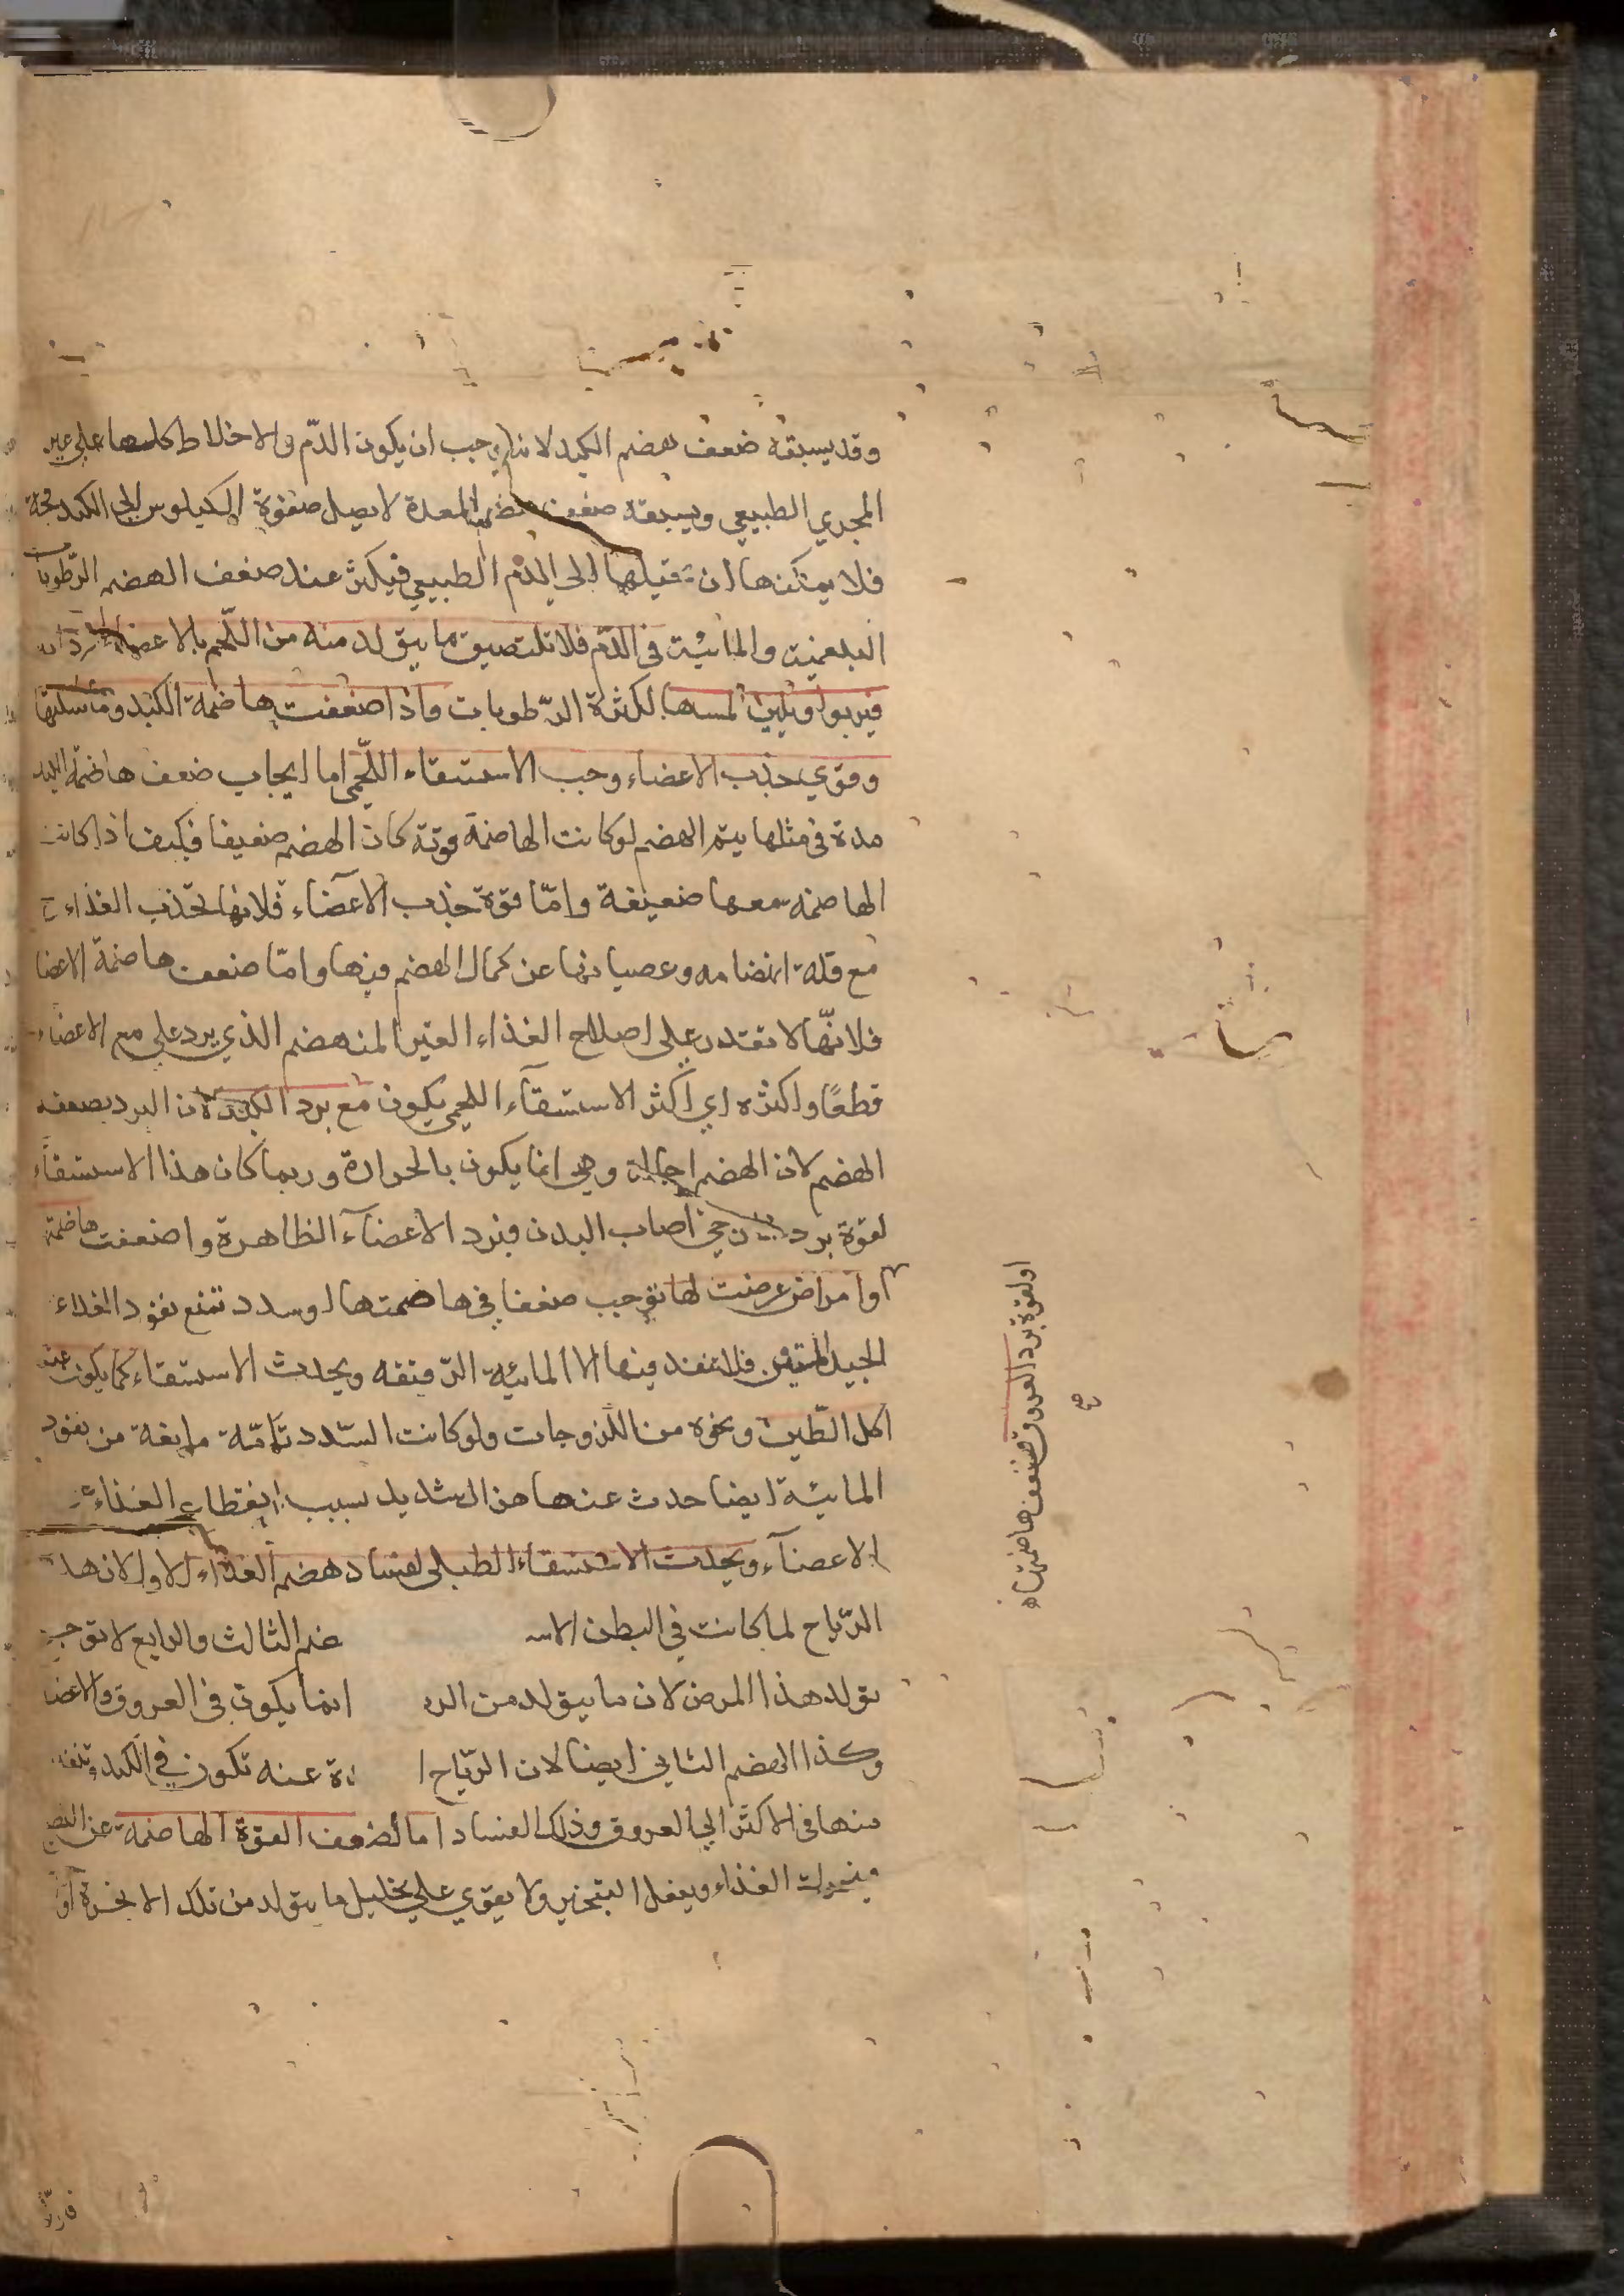 وقد يسبقه ضعف هضم الكبد لانه يوجب ان يكون الدّم والاخلاط كلها على غير
المجري الطبيعي ويسبقه ضعف هضم المعدة لا يصل صفوة الكيلوس الى الكبد فجة
فلا يمكنها ان تقبلها الى الدم الطبيعي فيكثر عند ضعف الهضم الرّطوبات
البلغمية والمائية في الدّم فلا تلتصق ما يتولد منه من اللّحم بالاعضاء
فيربوا ويلين لمسها لكثرة الرّطوبات واذا ضعفت هاضمة الكبد وماسكتها
وقوي جذب الاعضاء وجب الاستسقاء اللّحمي اما ايجاب ضعف هاضمة الكبد
مدة في مثلها يتم الهضم لو كانت الهاضمة قوية كان الهضم ضعيفا فكيف اذا كانت
الهاضمة معها ضعيفة وامّا قوة جذب الآعضاء فلانها تجذب الغذاء ح
مع قلة انهضامه وعصيانها عن كمال الهضم فيها وامّا ضعف هاضمة الاعضا
فلانّها لا تقتدر على اصلاح الغذاء الغير المنهضم الذي يرد على مع الاعضاء
قطعًا واكثره اي اكثر الاستسقآء اللحمي يكون مع برد الكبد لان البرد يضعف
الهضم لان الهضم احالة وهي انما يكون بالحرارة وربما كان هذا الاستسقاء
لقوة برد اصاب البدن فبرد الاعضآء الظاهرة واضعفت هاضمة
او امراض عرضت لها توجب ضعفا في هاضمتها او سدد تمنع نفوذ الغذاء
الجيد المتين فلا ينفذ فيها الا المائية الرّقيقه ويحدث الاستسقاء كما يكون عند
اكل الطّين ونحوه من اللزوجات ولو كانت السّدد تامّة مانعة من نفود
المائية ايضا حدث عنها هزال شديد بسبب انقطاع الغذاء عن
الاعضآء ويحدث الاستسقاء الطبلي لفساد هضم الغذاء الاول لان هذه
الرّياح لما كانت في البطن الاسـ ضم الثالث والرابع لا توجب
تولد هذا المرض لان ما يتولد من الر انما يكون في العروق والاعضا
وكذا الهضم الثاني ايضا لان الرّياح ا ـدة عنه تكون في الكبد وتنفذ
منها في الاكثر الى العروق وذلك الفساد اما لضعف القوة الهاضمة عن النضج
فيتحرك الغذاء ويفعل التبخير ولا يقوي على تحليل ما يتولد من تلك الابخرة او
او لقوة برد العروق فتضعف هاضمتها
صح